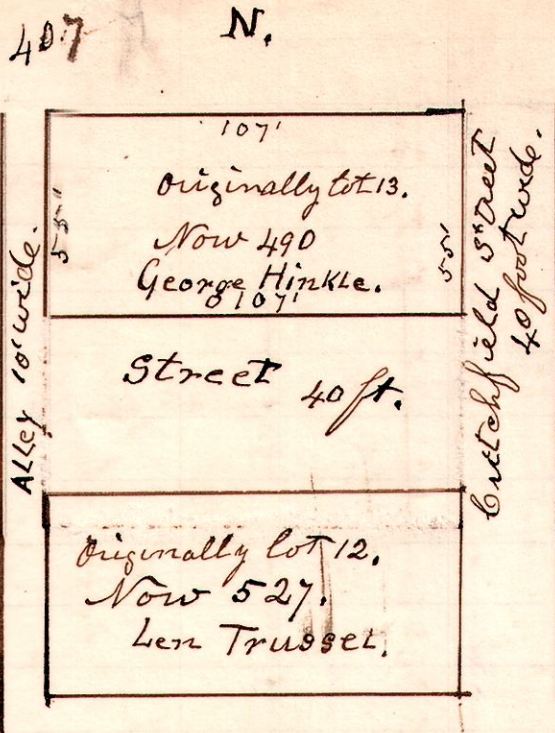 407
N.
107'
Originally lot 13.
Now 490
George Hinkle.
107'
55'
55'
Alley 10' wide.
Street 40 ft.
Critchfield Street
40 foot wide.
Originally lot 12.
Now 527.
Len Trussel.